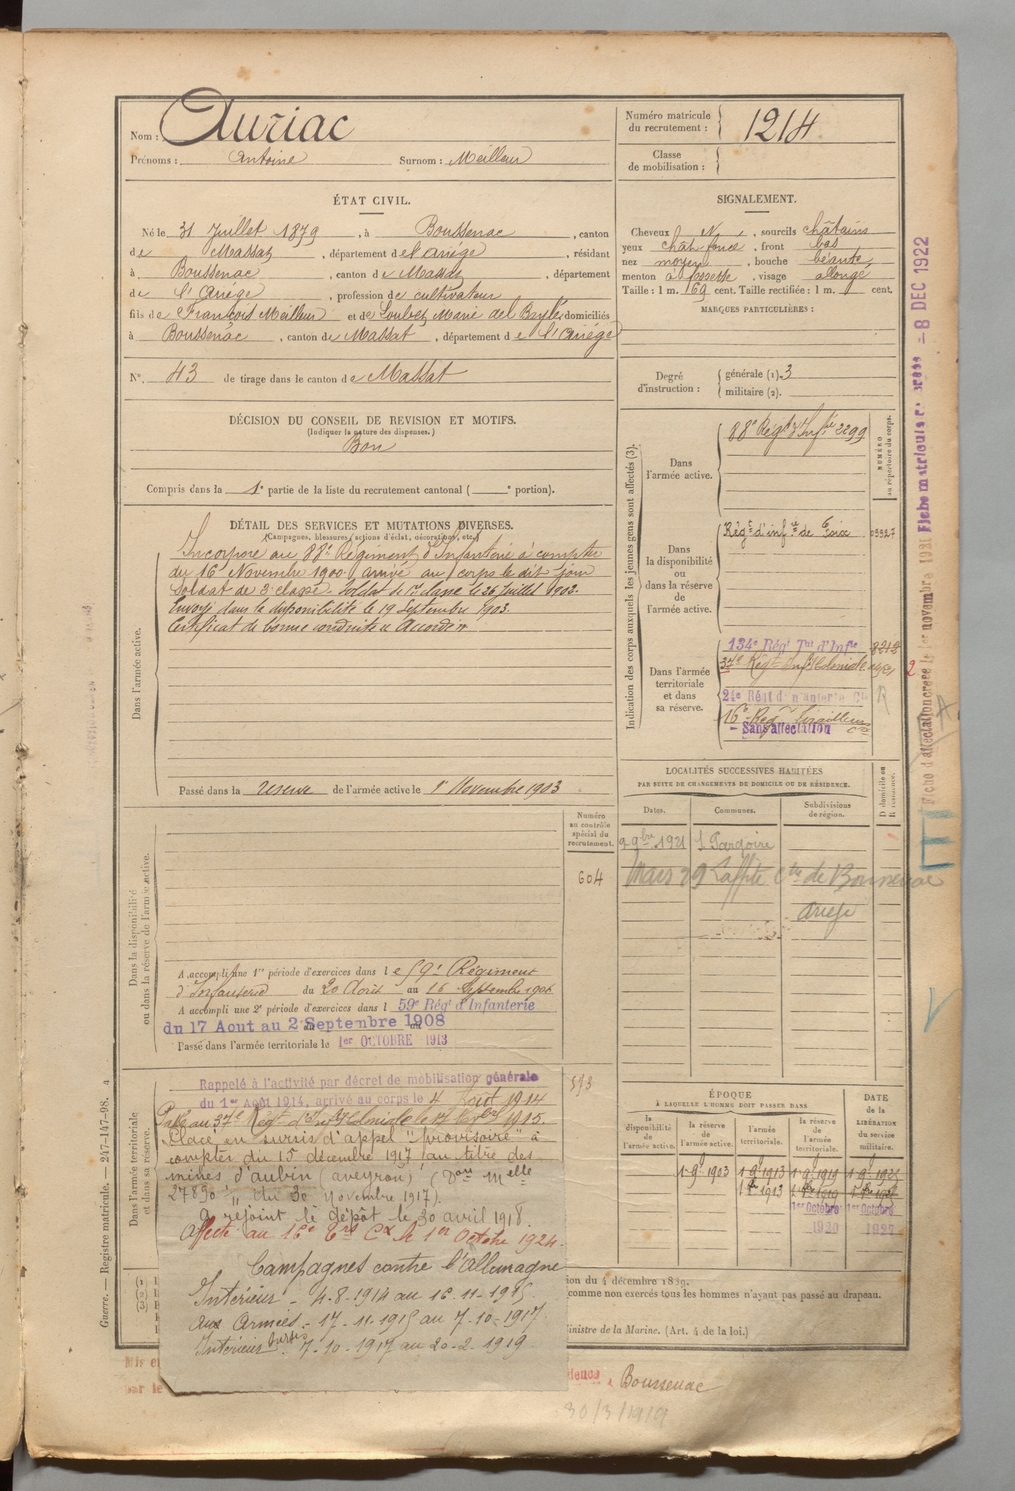 Nom : Auriac
Prénoms : Antoine Surnom : Meilleur
Numéro matricule du recrutement : 1214
Classe de mobilisation :
ÉTAT CIVIL.
Né le 31 Juillet 1879, à Boussenac, canton
de Massat, département de l'Ariége, résidant
à Boussenac, canton de Massat, département
de l'Ariége, profession de cultivateur
fils de François Meilleur et de Loubet Marie del Bayle, domiciliés
à Boussenac, canton de Massat, département de l'Ariége
N° 43 de tirage dans le canton de Massat
SIGNALEMENT.
Cheveux N, sourcils châtains
yeux chât. foncé, front bas
nez moyen, bouche béante
menton à fossette, visage allongé
Taille : 1 m. 69 cent. Taille rectifiée : 1 m. cent.
MARQUES PARTICULIÈRES :
Degré d'instruction : générale (1). 3
militaire (2).
DÉCISION DU CONSEIL DE REVISION ET MOTIFS.
(Indiquer la nature des dispenses.)
Bon
Compris dans la 1e partie de la liste du recrutement cantonal ( e portion).
DÉTAIL DES SERVICES ET MUTATIONS DIVERSES.
(Campagnes, blessures, actions d'éclat, décorations, etc.)
Dans l'armée active.
Incorporé au 88e Régiment d'Infanterie à compter
du 16 Novembre 1900 arrivé au corps le dit jour
Soldat de 2e classe. Soldat de 1re classe le 26 Juillet 1902.
Envoyé dans la disponibilité le 19 Septembre 1903.
Certificat de bonne conduite "Accordé"
Passé dans la réserve de l'armée active le 1er Novembre 1903
Indication des corps auxquels les jeunes gens sont affectés (3).
NUMÉRO au répertoire du corps.
Dans l'armée active.
88e Régt d'Infie 2299
Dans la disponibilité ou dans la réserve de l'armée active.
Régt d'infie de Foix 03327
Dans l'armée territoriale et dans sa réserve.
134e Régt Tal d'Infie 8212
37e Régt Infie Coloniale
24e Régt d'Infanterie Cle
16e Régt Tirailleurs
- Sans affectation
Fiche d'affectation créée le 1er novembre 1921 Fiche matricule - 8 DEC 1922
LOCALITÉS SUCCESSIVES HABITÉES
PAR SUITE DE CHANGEMENTS DE DOMICILE OU DE RÉSIDENCE.
Dates. Communes. Subdivisions de région. D domicile ou R résidence.
9bre 1921
Mars 29 Laffite Cne de Boussenac
Ariège
Dans la disponibilité ou dans la réserve de l'armée active.
Numéro au contrôle spécial du recrutement.
604
A accompli une 1re période d'exercices dans le 59e Régiment
d'Infanterie du 20 Août au 16 Septembre 1906
A accompli une 2e période d'exercices dans l 59e Régt d'Infanterie
du 17 Aout au 2 Septembre 1908
Passé dans l'armée territoriale le 1er OCTOBRE 1913
Dans l'armée territoriale et dans sa réserve.
593
Rappelé à l'activité par décret de mobilisation générale
du 1er Août 1914, arrivé au corps le 4 Août 1914
Passé au 37e Régt d'Infie Coloniale le
Placé en sursis d'appel "Provisoire" à
compter du 15 décembre 1917 au titre des
mines d'aubin (aveyron) (Don Melle
27890 du 30 Novembre 1917).
a rejoint le dépôt le 30 avril 1918.
Affecté au 16e Trs Cx le 1er Octobre 1924.
Campagnes contre l'Allemagne
Intérieur - 4.8.1914 au 16-11-1915.
aux Armées - 17-11-1915 au 7-10-1917.
Intérieur sursis 7-10-1917 au 20-2-1919
ÉPOQUE
À LAQUELLE L'HOMME DOIT PASSER DANS
la disponibilité de l'armée active. la réserve de l'armée active. l'armée territoriale. la réserve de l'armée territoriale.
DATE de la LIBÉRATION du service militaire.
1er Octobre 1920 1er Octobre
ion du 4 décembre 1889.
comme non exercés tous les hommes n'ayant pas passé au drapeau.
inistre de la Marine. (Art. 4 de la loi.)
Guerre. — Registre matricule. — 247-147-98.
Mis e
par le
dence à Boussenac
30/3/1919